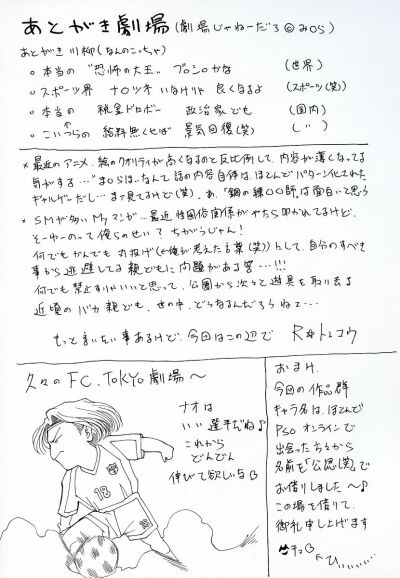 あとがき劇場(劇場じゃねーだろ©みOS)
あとがき 川柳(なんのこっちゃ)
○本当の "恐怖の大王" ブッシュかな (世界)
○スポーツ界 ナベツネ いなけりゃ 良くなるよ (スポーツ(笑))
○本当の 税金ドロボー 政治家ども (国内)
○こいつらの 給料無くせば 景気回復(笑) (〃)
*最近のアニメ、絵のクオリティが高くなるのと反比例して、内容が薄くなってる
気がする…"まOらほーなんて話の内容自体は、ほとんどパターン化された
ギャルゲーだし…まァ見てるけど(笑)、あ、"鋼の錬〇〇師"は面白いと思う
*SMが多いMyマンガ…最近性風俗関係がやたら叩かれてるけど、
そーゆーのって俺らのせい? ちがうじゃん!
何でもかんでも丸投げ(←俺が考えた言葉(笑))にして、自分のすべき
事から逃避してる親どもに問題がある筈…!!!
何でも禁止すりゃいいと思って、公園から次々と遊具を取り去る
近頃のバカ親ども、世の中、どうなるんだろうねェ…
もっと言いたい事あるけど、今回はこの辺で R*トレコウ
久々のFC.TOKYO劇場〜
ナオは
いい選手だね♪
これから
どんどん
伸びて欲しいなB
18
おまけ
今回の作品群
キャラ名は、ほとんど
PSOオンラインで
出会った方々から
名前を「公認(笑)」で
お借りしました〜♪
この場を借りて、
御礼申し上げます